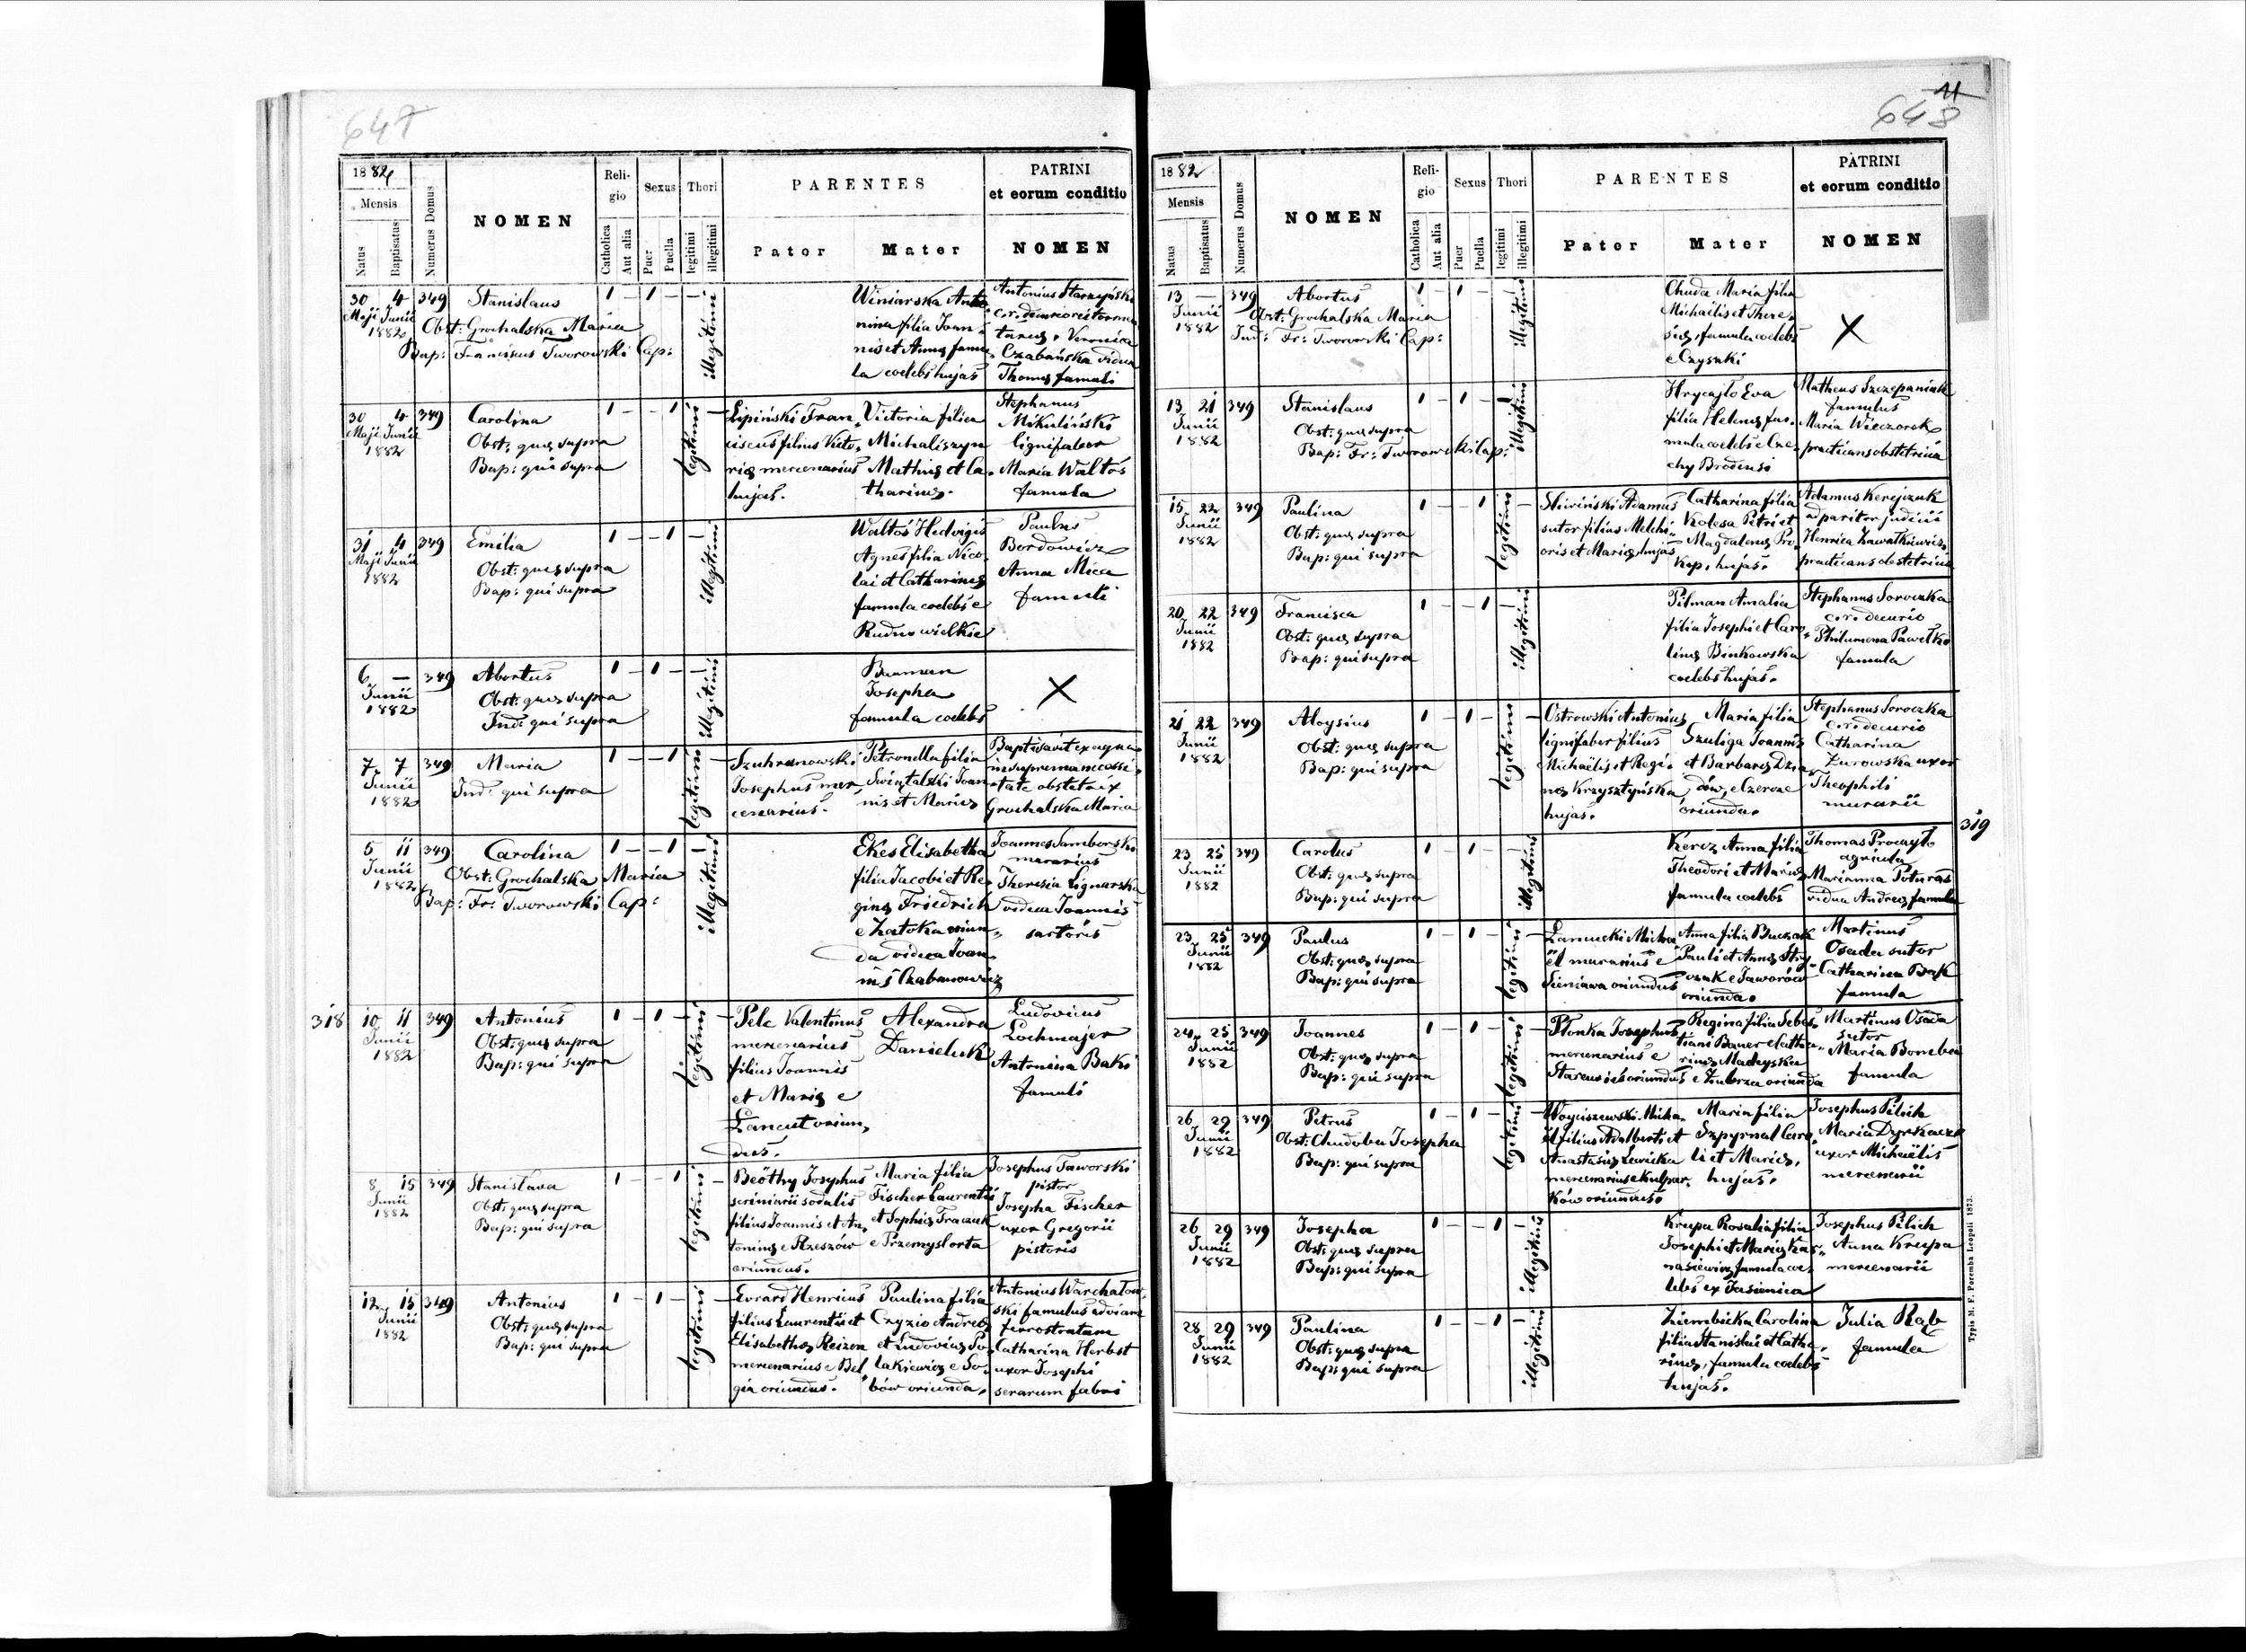 647
1882
Mensis
Natus
Baptisatus
Numerus Domus
NOMEN
Reli-
gio
Catholica
Aut alia
Sexus
Puer
Puella
Thori
legitimi
illegitimi
PARENTES
Pater
Mater
PATRINI
et eorum conditio
NOMEN
30 4 349 Stanislaus 1 – 1 – –
Maji Junii
1882 Obst: Grochalska Maria
Bap: Franciscus Tworowski Cap:
illegitimi
Winiarska Anto
nina filia Joan-
nis et Annę famu-
la coelebs hujas
Antonius Starzyński
Veronica
Czabańska vidua
Thomę famuli
30 4 349 Carolina 1 – – 1 –
Maji Junii Obst: quę supra
1882 Bap: qui supra
legitimi
Lipiński Fran-
ciscus filius Victo-
rię mercenarius
hujas.
Victoria filia
Michaliszyn
Mathię et Ca-
tharinę.
Stephanus
Mikuliński
lignifaber
Maria Waltoś
famula
31 4 349 Emilia 1 – – 1 –
Maji Junii Obst: quę supra
1882 Bap: qui supra
illegitimi
Waltoś Hedvigis
Agnes filia Nico-
lai et Catharinę
famula coelebs e
Rudno wielkie
Paulus
Bordowicz
Anna Micca
famuli
6 – 349 Abortus 1 – 1 – –
Junii Obst: quę supra
1882 Ind: qui supra
illegitimi
Josepha
famula coelebs
X
7 7 349 Maria 1 – – 1
Junii Ind: qui supra
1882
legitimi
Szuhranowski
Josephus mer-
cenarius.
Petronella filia
Świętalski Joan-
nis et Marię
Baptisavit ex aqua
in suprema necessi-
tate obstetrix
Grochalska Maria
5 11 349 Carolina 1 – – 1 –
Junii Obst: Grochalska Maria
1882 Bap: Fr: Tworowski Cap:
illegitimi
Ekes Elisabetha
filia Jacobi et Re-
ginę Friedrich
e Zatoka oriun-
da vidua Joan-
nis Czabanowicz
Joannes Samborski
murarius
Theresia Lignarska
vidua Joannis
sartoris
318 10 11 349 Antonius 1 – 1 – –
Junii Obst: quę supra
1882 Bap: qui supra
legitimi
Pelc Valentinus
mercenarius
filius Joannis
et Marię e
Łancut oriun-
dus.
Alexandra
Danieluk
Ludovicus
Lochmajer
Antonina Baki
famuli
8 15 349 Stanislava 1 – – 1 –
Junii Obst: quę supra
1882 Bap: qui supra
legitimi
Beöthy Josephus
scriniarii sodalis
filius Joannis et An-
toninę e Rzeszów
oriundus.
Maria filia
Fischer Laurentii
et Sophię Traczuk
e Przemysl orta
Josephus Jaworski
pistor
Josepha Fischer
uxor Gregorii
pistoris
12 15 349 Antonius 1 – 1 – –
Junii Obst: quę supra
1882 Bap: qui supra
legitimi
Evrard Henricus
filius Laurentii et
Elisabethę Reizen
mercenarius e Bel
gia oriundus.
Paulina filia
Czyzio Andreę
et Ludovicę Po-
lakiewicz e So-
bów oriunda.
Antonius Warchałow-
ski famulus ad viam
ferrostratam
Catharina Herbst
uxor Josephi
serarum fabri
11
648
1882
Mensis
Natus
Baptisatus
Numerus Domus
NOMEN
Reli-
gio
Catholica
Aut alia
Sexus
Puer
Puella
Thori
legitimi
illegitimi
PARENTES
Pater
Mater
PATRINI
et eorum conditio
NOMEN
13 – 349 Abortus 1 – 1 – –
Junii Obst: Grochalska Maria
1882 Ind: Fr: Tworowski Cap:
illegitimi
Chuda Maria filia
Michaëlis et There-
się, famula coelebs
e Czyszki
X
13 21 349 Stanislaus 1 – 1 –
Junii Obst: quę supra
1882 Bap: Fr: Tworowski Cap:
illegitimi
Hrycajło Eva
filia Helenę fa-
mula coelebs e Cze-
chy Brodensi
Matheus Szczepaniuk
famulus
Maria Wieczorek
practicans obstetricia
15 22 349 Paulina 1 – – 1 –
Junii Obst: quę supra
1882 Bap: qui supra
legitimi
Śliwiński Adamus
sutor filius Melchi-
oris et Marię hujas
Catharina filia
Kolesa Petri et
Magdalenę Pro-
kop, hujas.
Adamus Kerejczuk
adparitor judicii
Henrica Zawałkiewicz
practicans obstetricia
20 22 349 Francisca 1 – – 1 –
Junii Obst: quę supra
1882 Bap: qui supra
illegitimi
Pitman Amalia
filia Josephi et Caro-
linę Binkowska
coelebs hujas.
Stephanus Soroczka
c.r. decurio
Philumena Pawełko
famula
21 22 349 Aloysius 1 – 1 – –
Junii Obst: quę supra
1882 Bap: qui supra
legitimi
Ostrowski Antonius
lignifaber filius
Michaëlis et Regi-
nę Krzysztyńska
hujas.
Maria filia
Szuliga Joannis
et Barbarę Dzia-
dów, e Izerze
oriunda.
Stephanus Soroczka
c.r. decurio
Catharina
Żurowska uxor
Theophili
murarii
319
23 25 349 Carolus 1 – 1 – –
Junii Obst: quę supra
1882 Bap: qui supra
illegitimi
Kercz Anna filia
Theodori et Marię
famula coelebs
Thomas Procajło
agricola
Marianna Poturas
vidua Andreę famula
23 25 349 Paulus 1 – 1 – –
Junii Obst: quę supra
1882 Bap: qui supra
legitimi
Łanucki Micha-
ël murarius e
Sieniawa oriundus
Anna filia Buczak
Pauli et Annę Stry-
czak e Jaworów
oriunda.
Martinus
Osada sutor
Catharina Bąk
famula
24 25 349 Joannes 1 – 1 – –
Junii Obst: quę supra
1882 Bap: qui supra
legitimi
Płonka Josephus
mercenarius e
Staresioło oriundus
Regina filia Sebas-
tiani Bauer et Catha-
rinę Madeyska
e Zubrza oriunda
Martinus Osada
sutor
Maria Bomba
famula
26 29 349 Petrus 1 – 1 – –
Junii Obst: Chudoba Josepha
1882 Bap: qui supra
legitimi
Woyciszewski Micha-
ël filius Adalberti et
Anastasię Lewicka
mercenarius e Kulpar-
ków oriundus.
Maria filia
Szpyrnal Caro-
li et Marię,
hujas.
Josephus Pilich
Maria Dyrkacz
uxor Michaëlis
mercenarii
26 29 349 Josepha 1 – – 1 –
Junii Obst: quę supra
1882 Bap: qui supra
illegitimi
Krupa Rosalia filia
Josephi et Marię Kar-
nasiewicz, famula coe-
lebs ex Jasienica
Josephus Pilich
Anna Krupa
mercenarii
28 29 349 Paulina 1 – – 1 –
Junii Obst: quę supra
1882 Bap: qui supra
illegitimi
Ziembicka Carolina
filia Stanislai et Catha-
rinę, famula coelebs
hujas.
Julia Rąb
famula
Typis M. F. Poremba Leopoli 1873.